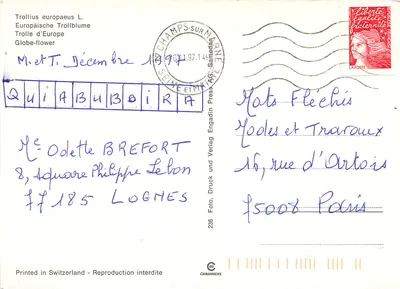 Trollius europaeus L.
Europäische Trollblume
Trolle d'Europe
Globe-flower
M. et T. Décembre 1997
QUIABUBBIRA
Me Odette BREFORT
8, square Philippe Lebon
77185 LOGNES
Printed in Switzerland - Reproduction interdite
236 Foto, Druck und Verlag Engadin Press AG, Samedan
CHAMPS-SUR-MARNE
SEINE ET MARNE
Liberté
égalité
fraternité
LA POSTE
Mots Fléchés
Modes et Travaux
16, rue d'Artois
75008 Paris